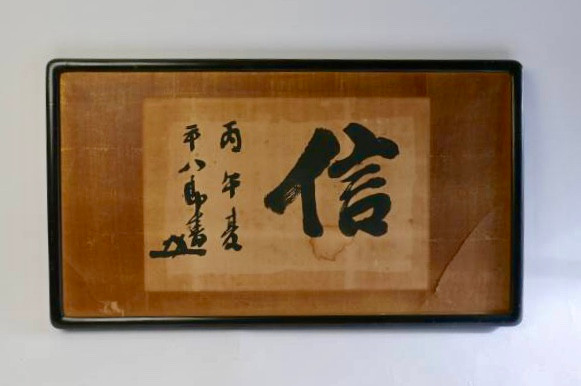 信
丙午夏
平八郎書